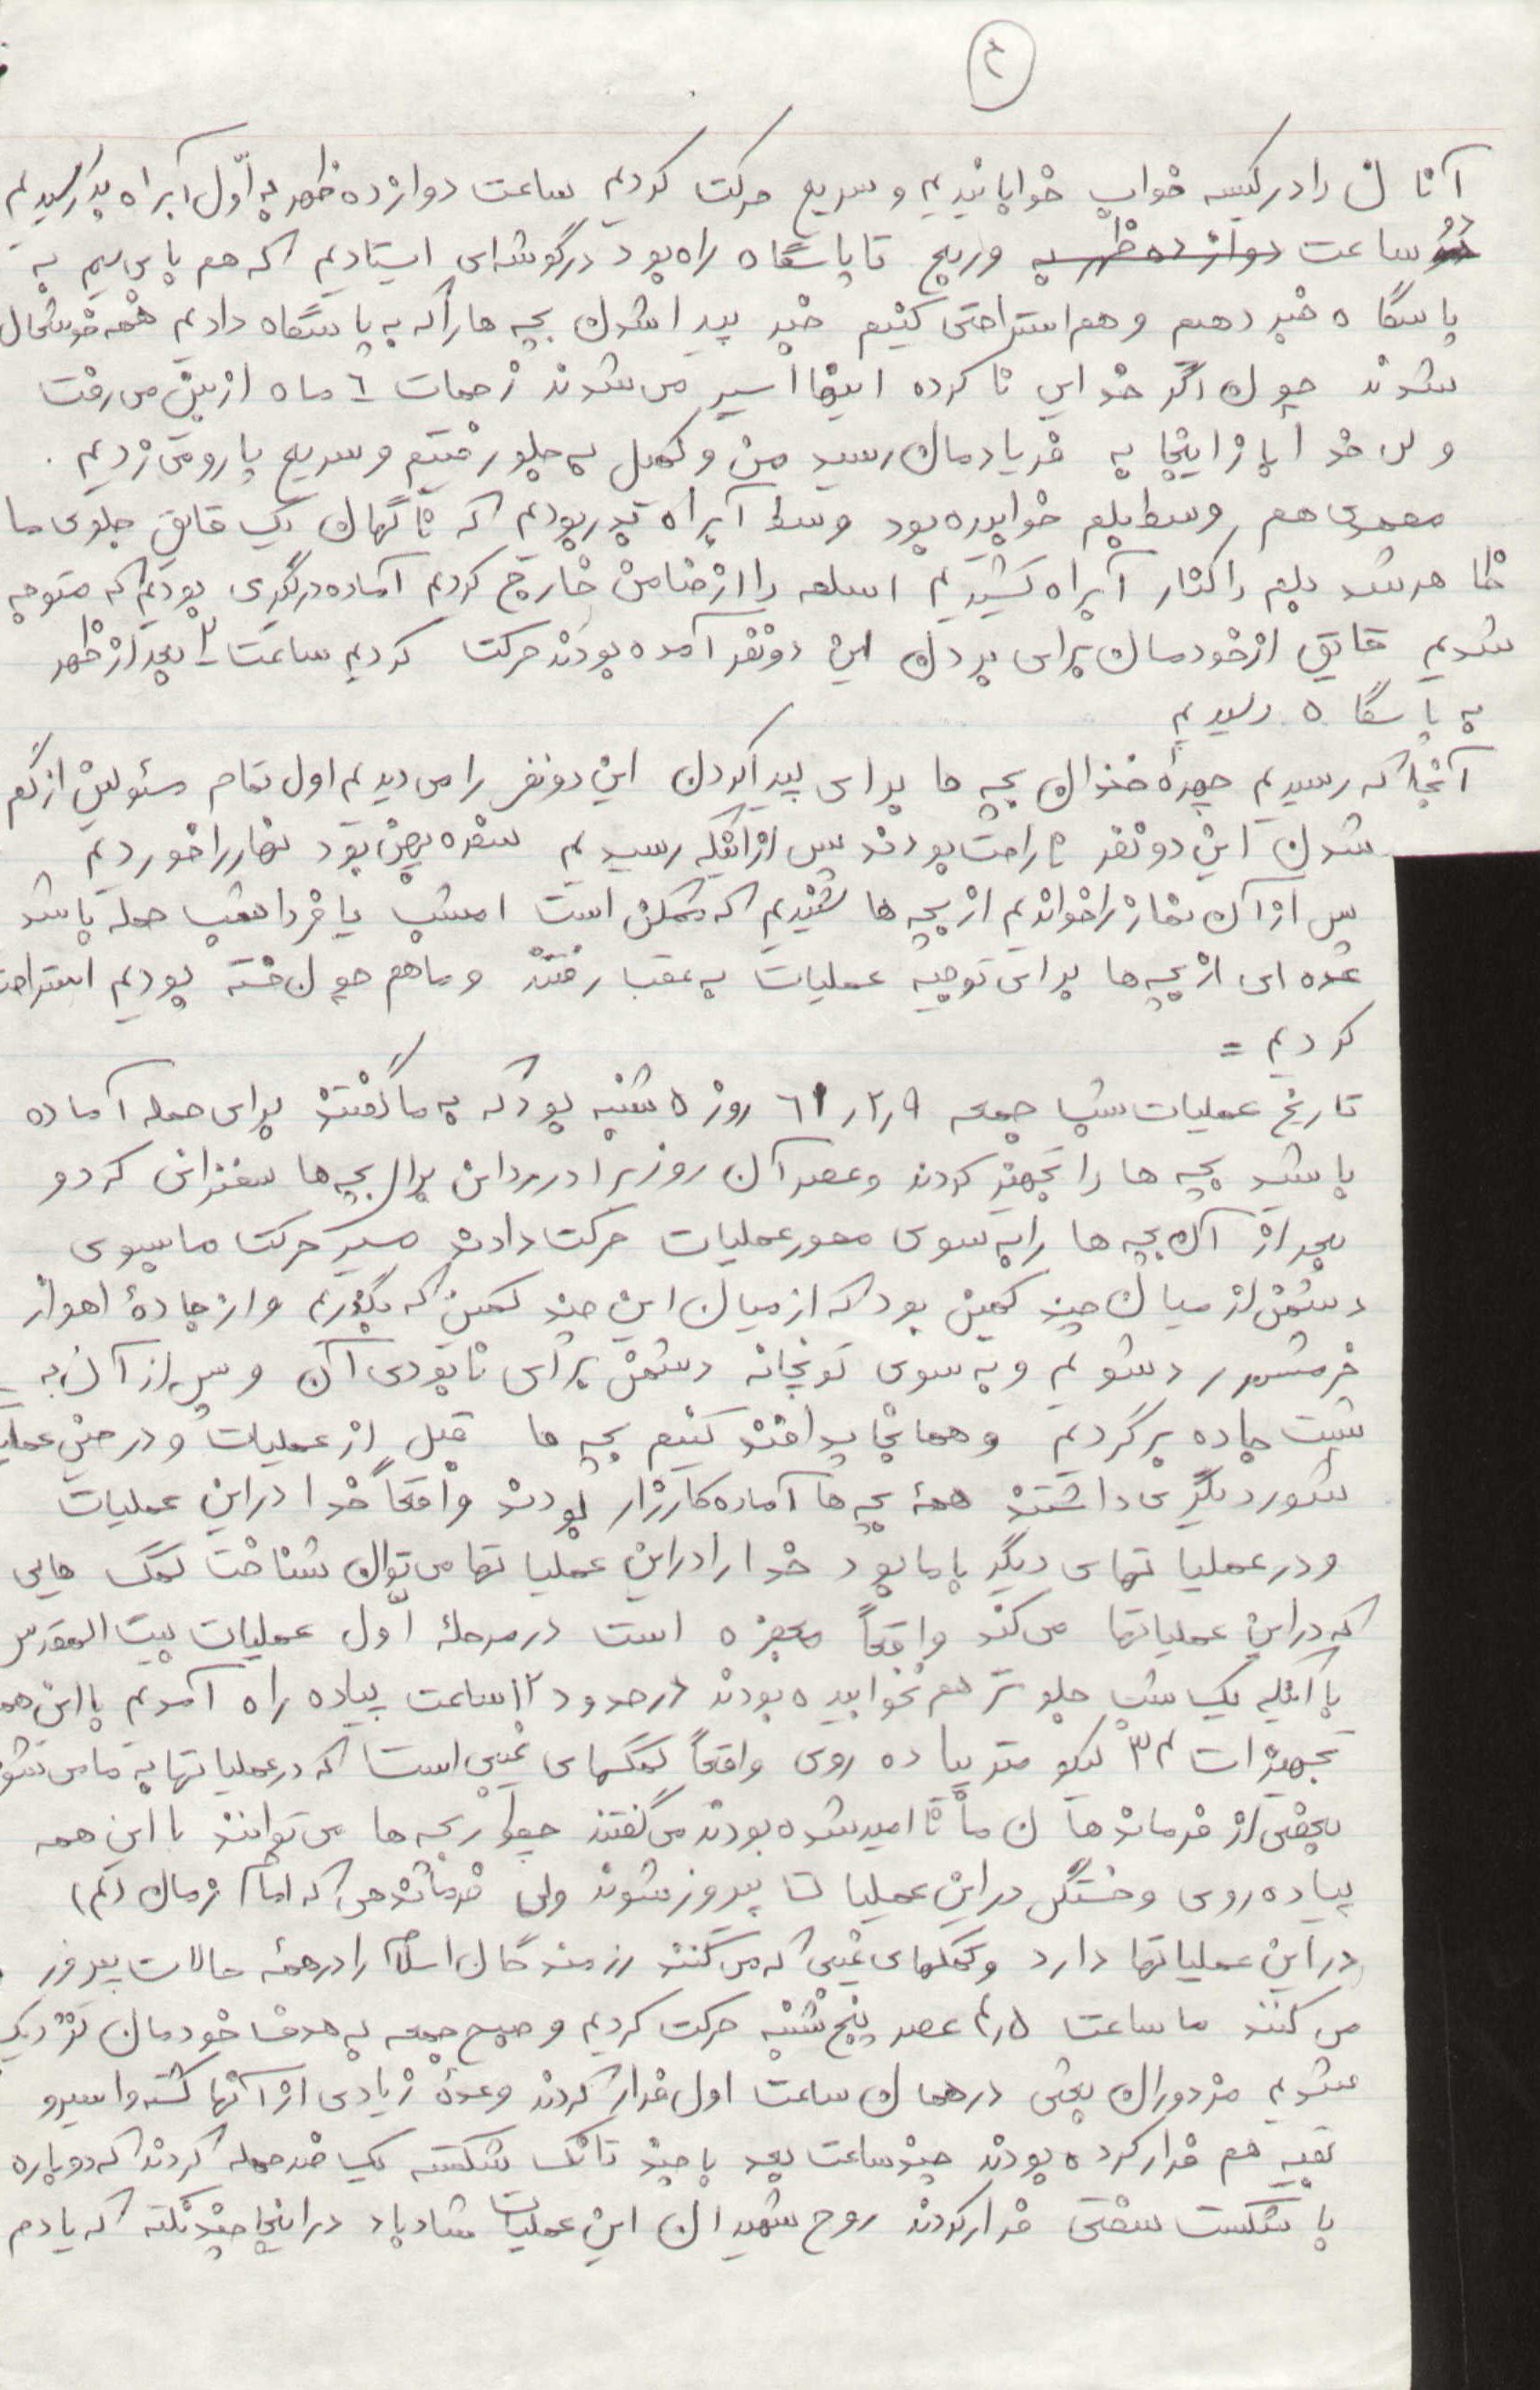 ۲
آنان را در کیسه خواب خوابانیدیم و سریع حرکت کردیم ساعت دوازده ظهر به اوّل آبراه بدر رسیدیم
ساعت دوازده ظهر به وربع تا پاسگاه راه بود در گوشه‌ای ایستادیم که هم با بی سیم به
پاسگاه خبر دهیم و هم استراحتی کنیم خبر پیدا شدن بچه ها را که به پاسگاه دادیم همه خوشحال
شدند چون اگر خدایی نا کرده اینها اسیر می شدند زحمات ٦ ماه از بین می رفت
ولی خدا باز اینجا به فریادمان رسید من و کمیل به جلو رفتیم و سریع پارو می زدیم .
مهدی هم وسط بلم خوابیده بود وسط آبراه بدر بودیم که ناگهان یک قایق جلوی ما
ظاهر شد بلم را کنار آبراه کشیدیم اسلحه را از ضامن خارج کردیم آماده درگیری بودیم که متوجه
شدیم قایق از خودمان برای بردن این دو نفر آمده بودند حرکت کردیم ساعت ۲ بعد از ظهر
به پاسگاه رسیدیم
آنجا که رسیدیم چهرهٔ خندان بچه ها برای پیدا کردن این دو نفر را می دیدیم اول تمام مسئولین از گم
شدن این دو نفر ناراحت بودند پس از اینکه رسیدیم سفره پهن بود نهار را خوردیم
پس از آن نماز را خواندیم از بچه ها شنیدیم که ممکن است امشب یا فردا شب حمله باشد
عده ای از بچه ها برای توجیه عملیات به عقب رفتند و ما هم چون خسته بودیم استراحت
کردیم =
تاریخ عملیات شب جمعه ۶۱٫۲٫۹ روز ۵ شنبه بود که به ما گفتند برای حمله آماده
باشد بچه ها را تجهیز کردند و عصر آن روز برادر رداین برای بچه ها سخنرانی کرد و
بعد از آن بچه ها را به سوی محور عملیات حرکت دادند مسیر حرکت ما بسوی
دشمن از میان چند کمین بود که از میان این چند کمین که بگذریم و از جادهٔ اهواز
خرمشهر رد شویم و به سوی توپخانه دشمن برای نابودی آن و پس از آن به
پشت جاده برگردیم و همانجا پدافند کنیم بچه ها قبل از عملیات و در حین عملیات
شور دیگری داشتند همهٔ بچه ها آماده کارزار بودند واقعاً خدا در این عملیات
و در عملیاتهای دیگر با ما بود خدا را در این عملیاتها می توان شناخت کمک هایی
که در این عملیاتها می کند واقعاً معجزه است در مرحلهٔ اوّل عملیات بیت المقدس
با اینکه یک شب جلوتر هم نخوابیده بودند در حدود ۱۲ ساعت پیاده راه آمدیم با این همه
تجهیزات ۳۴ کیلو متر پیاده روی واقعاً کمکهای غیبی است که در عملیاتها به ما می شود
بعضی از فرماندهان ما نا امید شده بودند می گفتند چطور بچه ها می توانند با این همه
پیاده روی و خستگی در این عملیات پیروز شوند ولی فرماندهی که امام زمان (عج)
در این عملیاتها دارد و کمکهای غیبی که می کنند رزمندگان اسلام را در همهٔ حالات پیروز
می کنند ما ساعت ۴٫۵ عصر پنج شنبه حرکت کردیم و صبح جمعه به هدف خودمان نزدیک
شدیم مزدوران بعثی در همان ساعت اول فرار کردند و عدهٔ زیادی از آنها کشته و اسیر و
بقیه هم فرار کرده بودند چند ساعت بعد با چند تانک شکسته یک ضد حمله کردند که دوباره
با شکست سختی فرار کردند روح شهیدان این عملیات شاد باد در اینجا چند نکته که یادم